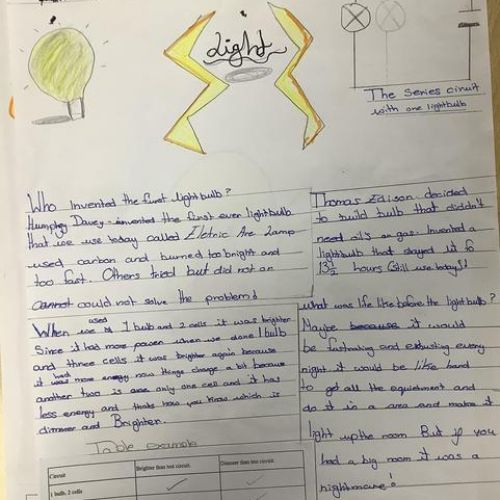 Light
The Series ciruit
with one lightbulb
Who invented the first lightbulb?
Humphry Davey invented the first ever lightbulb
that we use today called Eletric Arc Lamp
used carbon and burned too bright and
too fast. Others tried but did not an
cannot could not solve the problem!
Thomas Edison decided
to build bulb that didn't
need oil or gas. Invented a
lightbulb that stayed lit fo
13½ hours (Still use today)!
used
When we 1 bulb and 2 cells it was brighter
Since it had more power when we done 1 bulb
and three cells it was brighter again because
it had more energy now things change a bit because
another two is one only one cell and it has
less energy and thats how you know which is
dimmer and Brighter.
what was life like before the light bulb?
Maybe because it would
be and exhusting every
night it would be like hard
to get all the equiptment and
do it in a area and make it
light up the room But if you
had a big room it was a
nightmare!
Table example
Circuit Brighter than test circuit Dimmer than test circuit
1 bulb, 2 cells